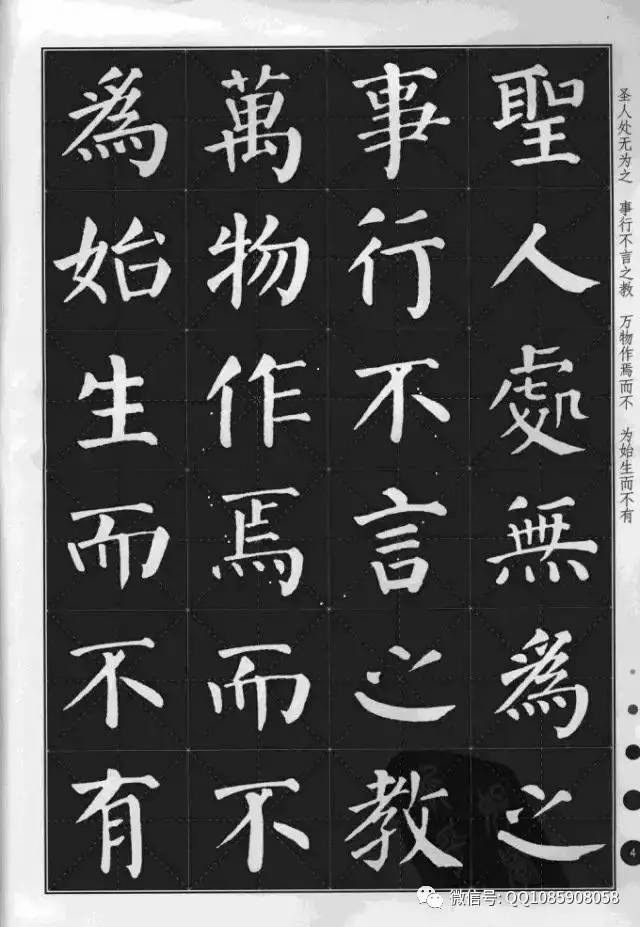 聖人處無爲之
事行不言之教
萬物作焉而不
爲始生而不有
圣人处无为之 事行不言之教 万物作焉而不 为始生而不有
4
微信号: QQ1085908058